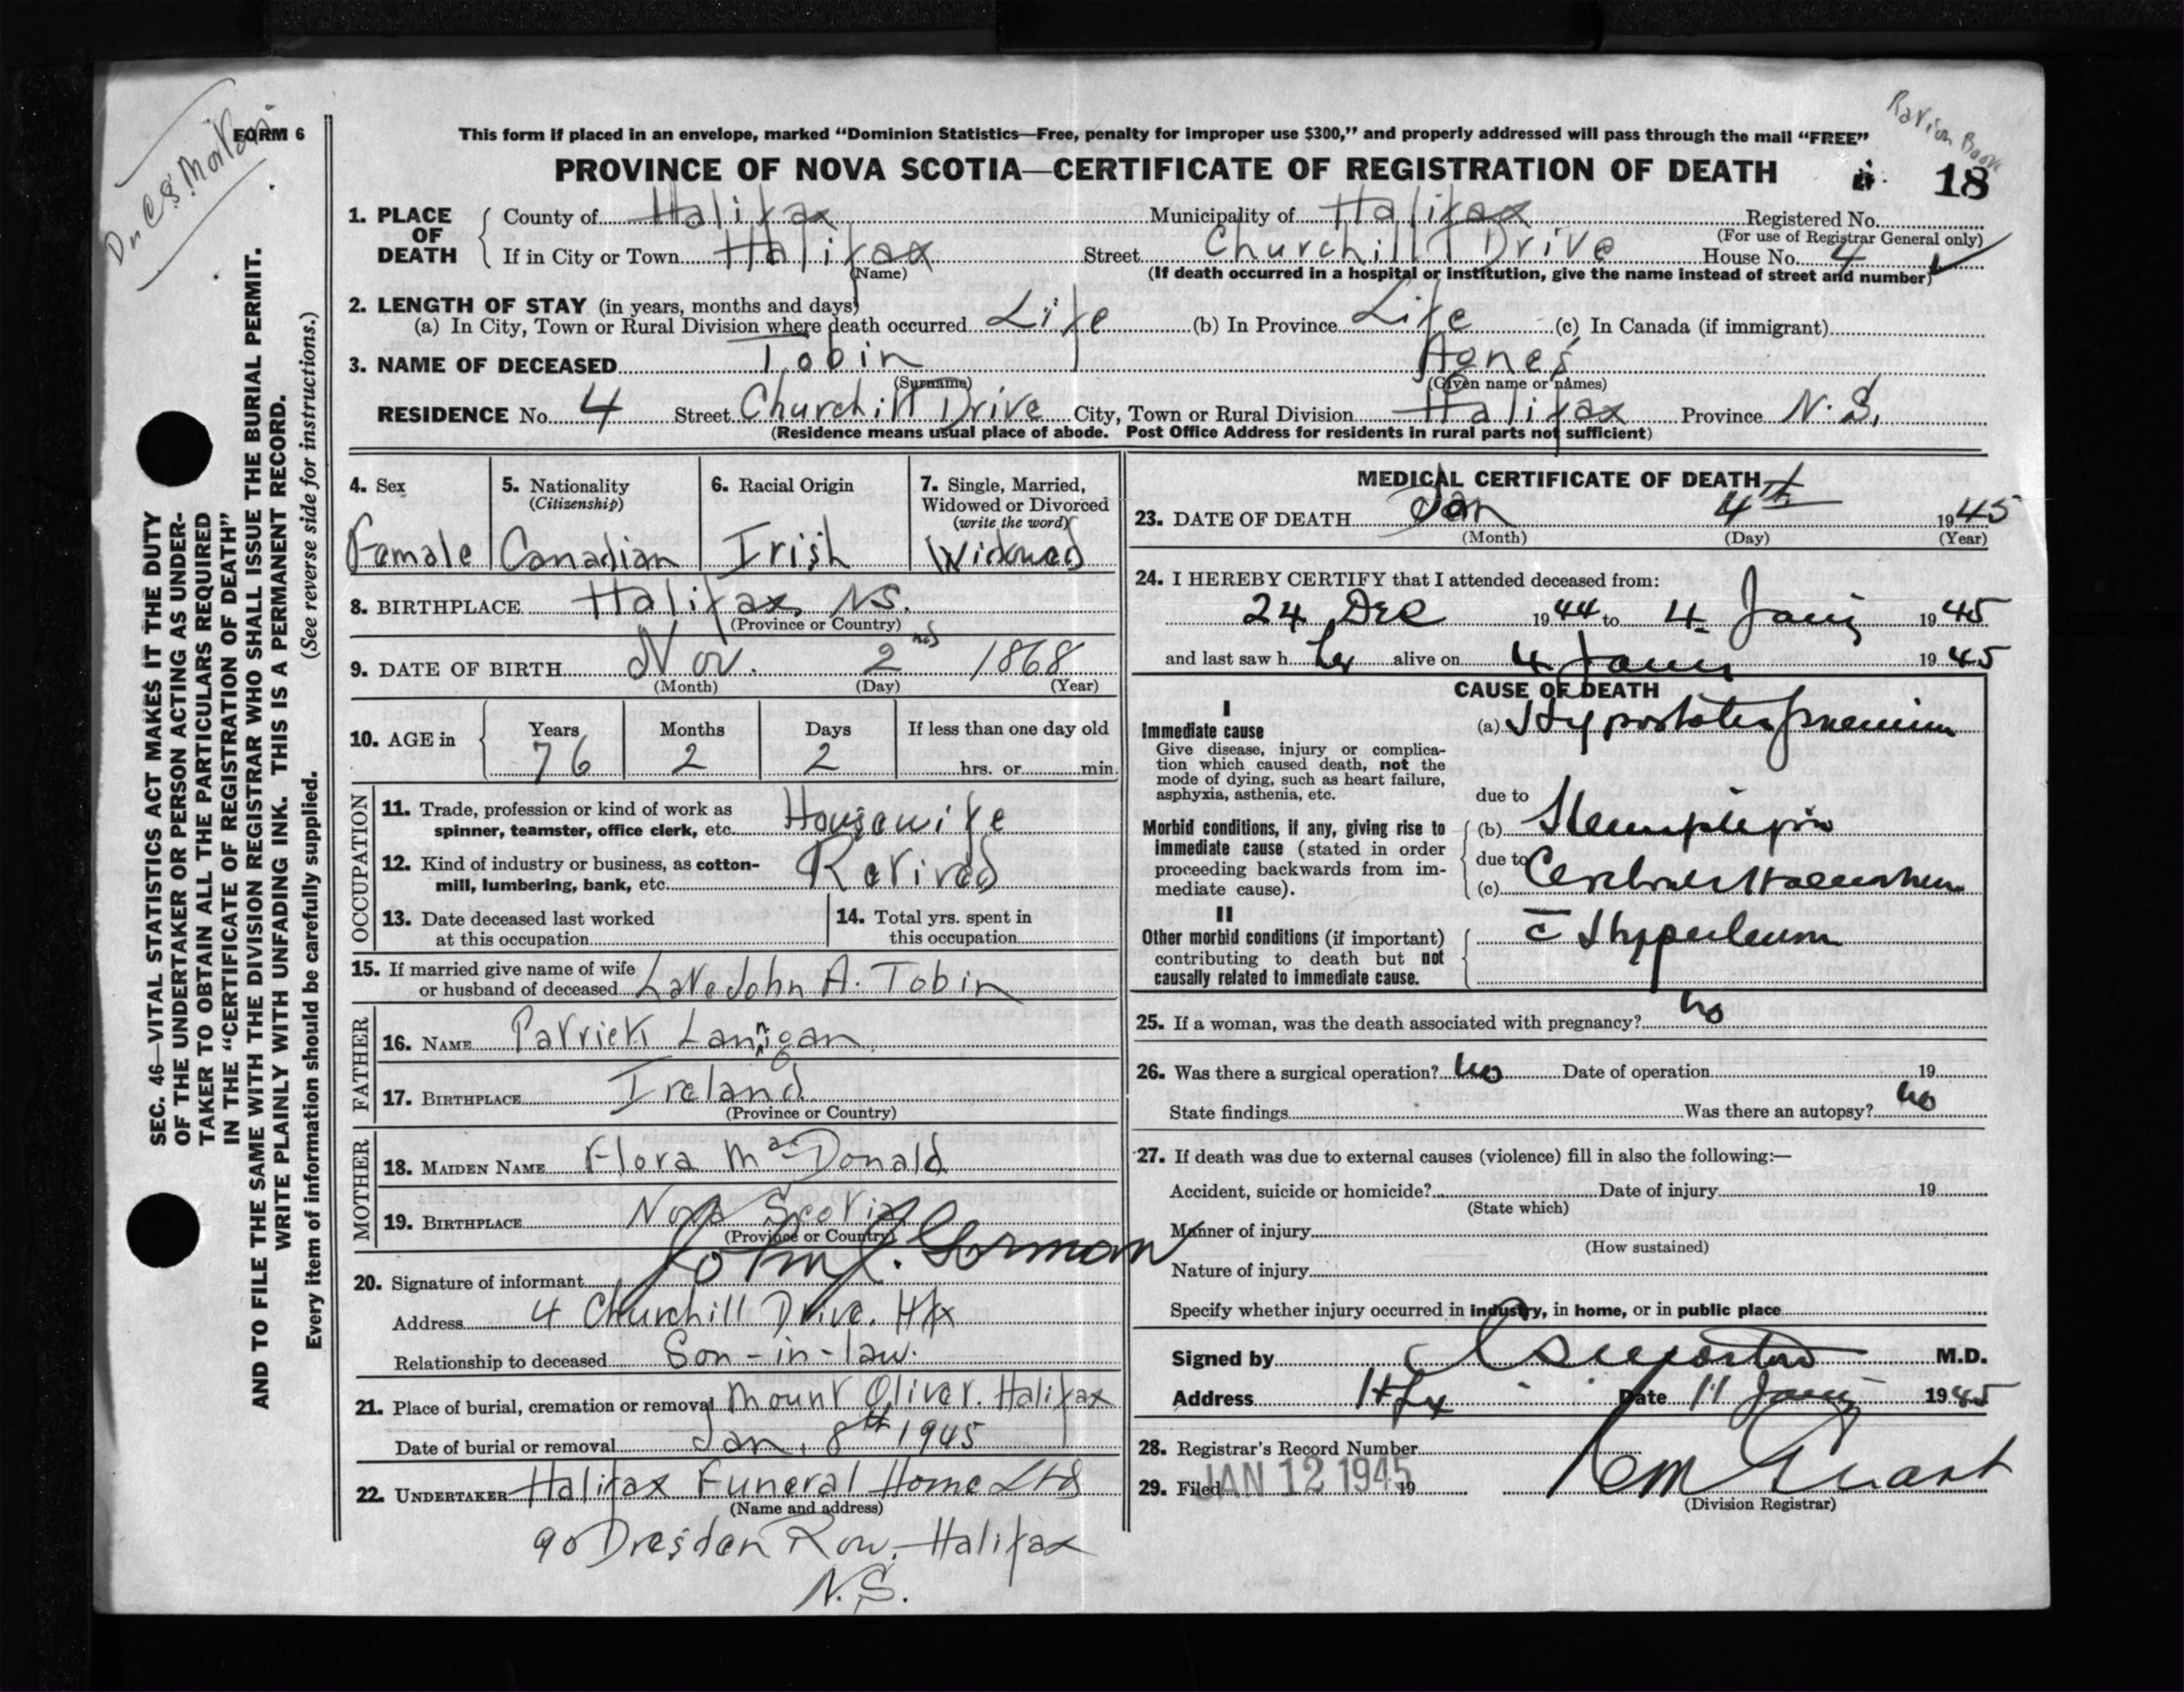 FORM 6
Ration Book
This form if placed in an envelope, marked “Dominion Statistics—Free, penalty for improper use $300,” and properly addressed will pass through the mail “FREE”
PROVINCE OF NOVA SCOTIA—CERTIFICATE OF REGISTRATION OF DEATH
18
1. PLACE OF DEATH
County of Halifax Municipality of Halifax Registered No.
(For use of Registrar General only)
If in City or Town Halifax Street Churchill Drive House No. 4
(Name) (If death occurred in a hospital or institution, give the name instead of street and number)
2. LENGTH OF STAY (in years, months and days)
(a) In City, Town or Rural Division where death occurred Life (b) In Province Life (c) In Canada (if immigrant)
3. NAME OF DECEASED Tobin Agnes
(Surname) (Given name or names)
RESIDENCE No. 4 Street Churchill Drive City, Town or Rural Division Halifax Province N.S.
(Residence means usual place of abode. Post Office Address for residents in rural parts not sufficient)
SEC. 46—VITAL STATISTICS ACT MAKES IT THE DUTY
OF THE UNDERTAKER OR PERSON ACTING AS UNDER-
TAKER TO OBTAIN ALL THE PARTICULARS REQUIRED
IN THE “CERTIFICATE OF REGISTRATION OF DEATH”
AND TO FILE THE SAME WITH THE DIVISION REGISTRAR WHO SHALL ISSUE THE BURIAL PERMIT.
WRITE PLAINLY WITH UNFADING INK. THIS IS A PERMANENT RECORD.
Every item of information should be carefully supplied. (See reverse side for instructions.)
4. Sex
Female
5. Nationality
(Citizenship)
Canadian
6. Racial Origin
Irish
7. Single, Married,
Widowed or Divorced
(write the word)
Widowed
8. BIRTHPLACE Halifax, NS.
(Province or Country)
9. DATE OF BIRTH Nov. 2nd 1868
(Month) (Day) (Year)
10. AGE in
Years Months Days If less than one day old
76 2 2 hrs. or min.
OCCUPATION
11. Trade, profession or kind of work as
spinner, teamster, office clerk, etc. Housewife
12. Kind of industry or business, as cotton-
mill, lumbering, bank, etc. Retired
13. Date deceased last worked
at this occupation
14. Total yrs. spent in
this occupation
15. If married give name of wife
or husband of deceased Late John A. Tobin
FATHER
16. NAME Patrick Lannigan
17. BIRTHPLACE Ireland
(Province or Country)
MOTHER
18. MAIDEN NAME Flora MacDonald
19. BIRTHPLACE Nova Scotia
(Province or Country)
20. Signature of informant John J. Gorman
Address 4 Churchill Drive. Hfx
Relationship to deceased Son-in-law.
21. Place of burial, cremation or removal Mount Olivet. Halifax
Date of burial or removal Jan. 8th 1945
22. UNDERTAKER Halifax Funeral Home Ltd
(Name and address)
90 Dresden Row. Halifax
N.S.
MEDICAL CERTIFICATE OF DEATH
23. DATE OF DEATH Jan 4th 1945
(Month) (Day) (Year)
24. I HEREBY CERTIFY that I attended deceased from:
24 Dec 1944 to 4 Jany 1945
and last saw her alive on 4 Jany 1945
CAUSE OF DEATH
I
Immediate cause
Give disease, injury or complica-
tion which caused death, not the
mode of dying, such as heart failure,
asphyxia, asthenia, etc.
(a) Hypostatic pneumonia
due to
Morbid conditions, if any, giving rise to
immediate cause (stated in order
proceeding backwards from im-
mediate cause).
(b) Hemiplegia
due to
(c) Cerebral Haemorrhage
II
Other morbid conditions (if important)
contributing to death but not
causally related to immediate cause.
25. If a woman, was the death associated with pregnancy? no
26. Was there a surgical operation? no Date of operation 19
State findings Was there an autopsy? no
27. If death was due to external causes (violence) fill in also the following:—
Accident, suicide or homicide? Date of injury 19
(State which)
Manner of injury
(How sustained)
Nature of injury
Specify whether injury occurred in industry, in home, or in public place
Signed by M.D.
Address Hfx Date 11 Jany 1945
28. Registrar's Record Number
29. Filed JAN 12 1945 19
(Division Registrar)